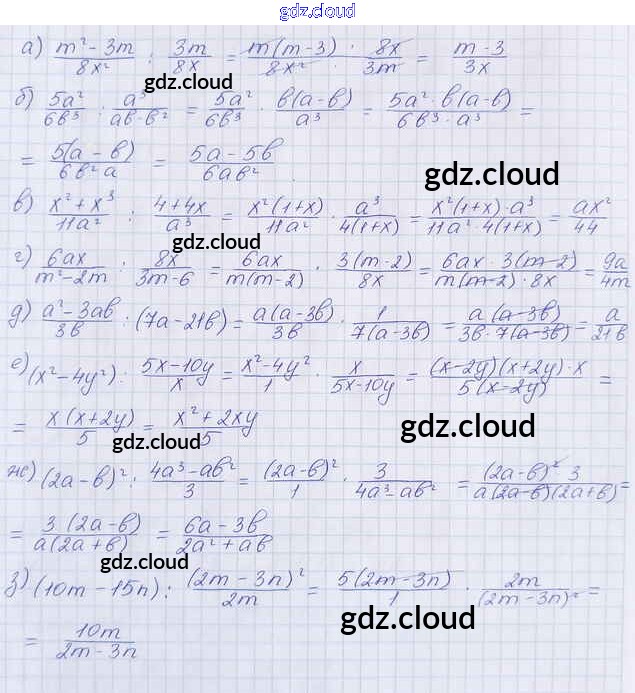 gdz.cloud
а) (m² - 3m)/(8x²) : (3m)/(8x) = (m(m-3))/(8x²) · (8x)/(3m) = (m-3)/(3x)
gdz.cloud
б) (5a²)/(6b³) : (a³)/(ab-b²) = (5a²)/(6b³) · (b(a-b))/(a³) = (5a²·b(a-b))/(6b³·a³) =
= (5(a-b))/(6b²a) = (5a-5b)/(6ab²)
gdz.cloud
в) (x²+x³)/(11a²) : (4+4x)/(a³) = (x²(1+x))/(11a²) · (a³)/(4(1+x)) = (x²(1+x)·a³)/(11a²·4(1+x)) = (ax²)/(44)
gdz.cloud
г) (6ax)/(m²-2m) : (8x)/(3m-6) = (6ax)/(m(m-2)) · (3(m-2))/(8x) = (6ax·3(m-2))/(m(m-2)·8x) = (9a)/(4m)
д) (a²-3ab)/(3b) : (7a-21b) = (a(a-3b))/(3b) · (1)/(7(a-3b)) = (a(a-3b))/(3b·7(a-3b)) = (a)/(21b)
е) (x²-4y²) : (5x-10y)/(x) = (x²-4y²)/(1) · (x)/(5x-10y) = ((x-2y)(x+2y)·x)/(5(x-2y)) =
= (x(x+2y))/(5) = (x²+2xy)/(5)
gdz.cloud
gdz.cloud
ж) (2a-b)² : (4a³-ab²)/(3) = ((2a-b)²)/(1) · (3)/(4a³-ab²) = ((2a-b)² 3)/(a(2a-b)(2a+b)) =
= (3(2a-b))/(a(2a+b)) = (6a-3b)/(2a²+ab)
gdz.cloud
gdz.cloud
з) (10m-15n) : ((2m-3n)²)/(2m) = (5(2m-3n))/(1) · (2m)/((2m-3n)²) =
= (10m)/(2m-3n)
gdz.cloud